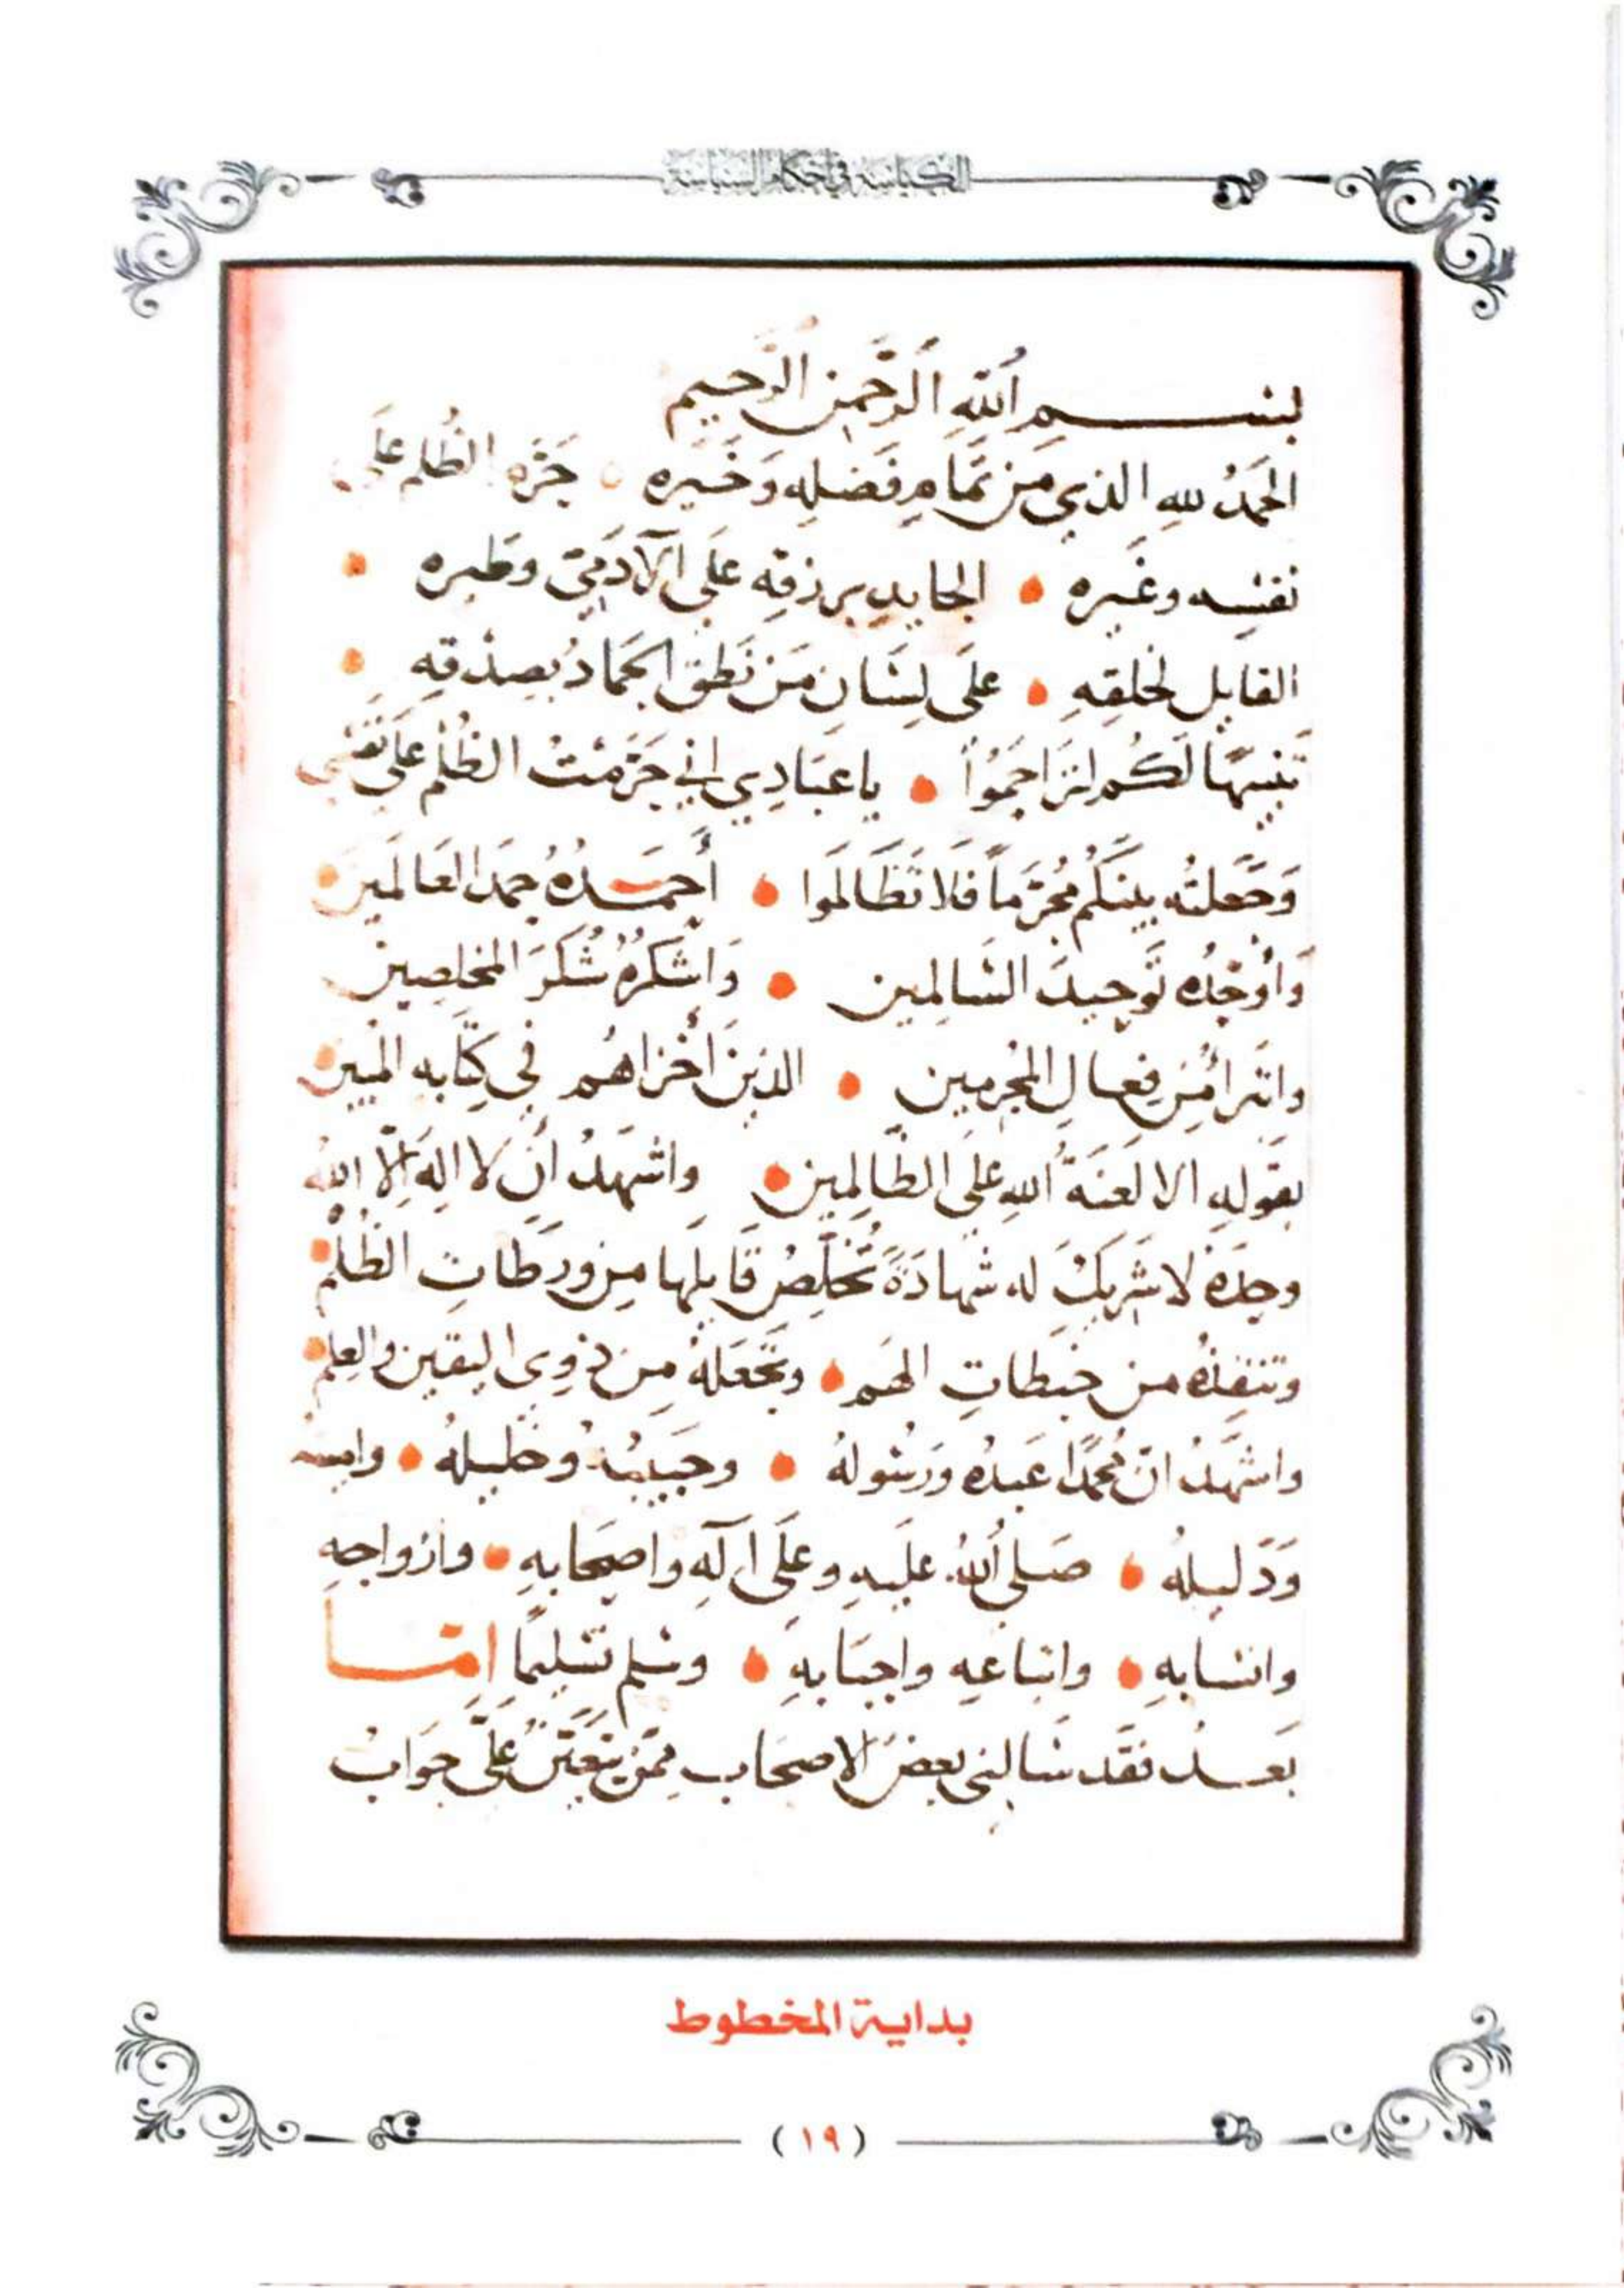 الكياسة في أحكام السياسة
بسم اللهِ الرَّحمن الرَّحيم
الحمدُ للهِ الذي مَن تمَامِ فَضلِه وَخَيره حَرَّم الظُلم عَلَى
نفسِه وغَيره الجايد برزقه عَلى الآدَميّ وطيره
القايل لخلقِهِ على لِسَانِ مَن نَطق الجمادُ بصِدْقه
تَنبيهًا لَكُم لتراحَمُوُا يا عبَادِي إني حَرَّمتُ الظُلْم عَلَى نفسي
وَجَعلتُه بينَكُم مُحَرَّماً فَلا تَظَالَموا أحمَدُهُ حمدَ العَالَمين
وَأوَحّدُه تَوحيدَ السَالِمين وَأشكرُهُ شُكرَ المخلصِين
واتبرأُ مِن فِعالِ المُجرمين الذينَ أخزاهُم في كِتَابه المبين
بقَولِه الا لَعنَةُ اللهِ عَلَى الظَالِمين واشهَدُ أن لا اله إلّا الله
وحدَهُ لا شَريكَ له شهادَةً تُخَلِّصُ قَايلَها مِن ورطَاتِ الظُلم
وتنقِذُهُ من خبطاتِ الهَم وتَجعَلهُ مِن ذوِي اليقين والعِلم
واشهَدُ انّ مُحمّدًا عَبدُه وَرَسُولهُ وحَبيبُهُ وخليلهُ وامينه
وَدَليلهُ صَلى اللهُ عَلَيهِ وعَلَى آلهِ واصحَابِهِ وأزواجِهِ
وانسابهِ واتباعهِ واحبَابِهِ وسَلم تَسْلِيمًا امّا
بَعدُ فَقَد سَالني بعضُ الاصحَاب مِمَّن يتَعَيَّنُ عَلَيَّ جوَابُ
بداية المخطوط
(١٩)